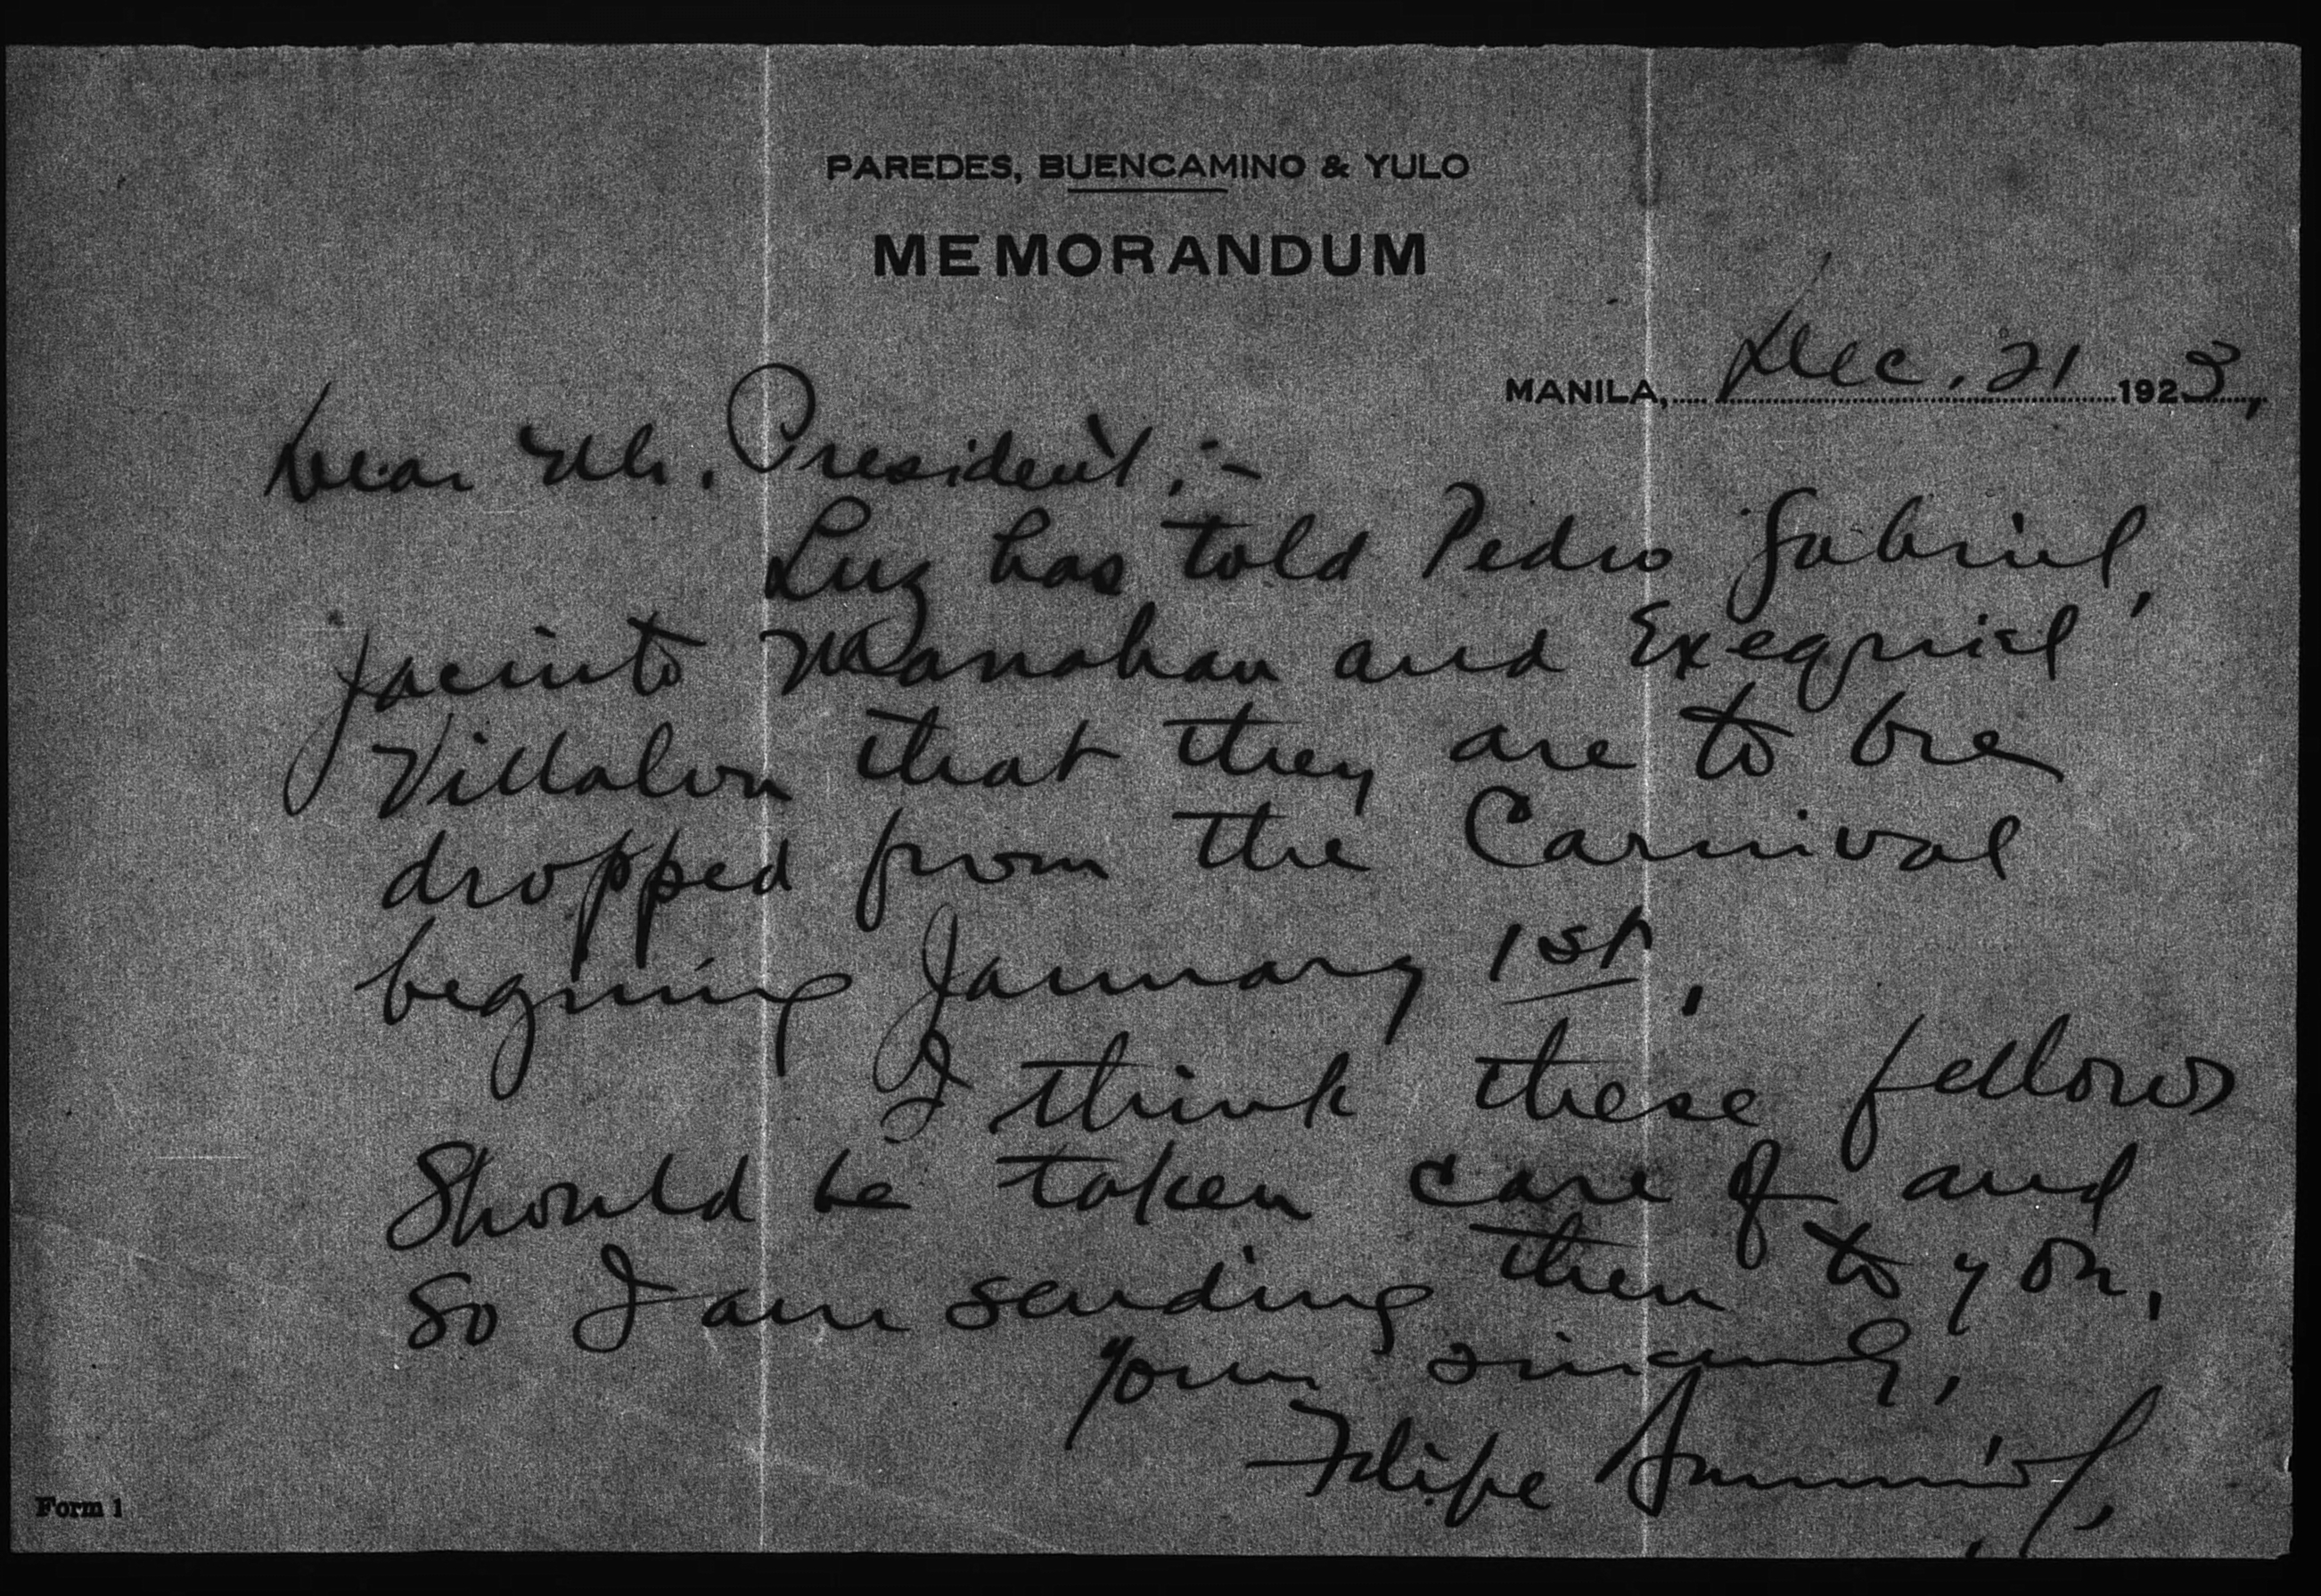 PAREDES, BUENCAMINO & YULO
MEMORANDUM
MANILA, Dec. 21 1923,
Dear Mr. President:-
Luz has told Pedro Gabriel,
Jacinto Manahan and Exequiel
Villalon that they are to be
dropped from the Carnival
begning January 1st.
I think these fellows
should be taken care of and
so I am sending them to you.
Yours sincerely,
Felipe
Form 1